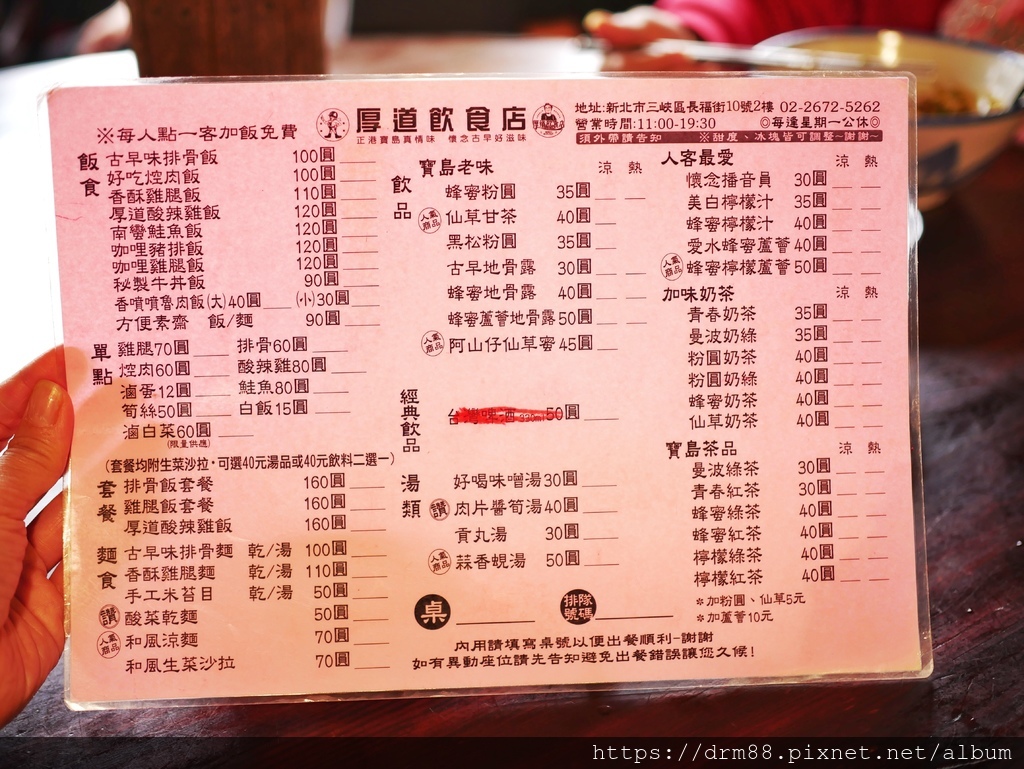 ※每人點一客加飯免費
厚道飲食店
正港寶島真情味 懷念古早好滋味
地址:新北市三峽區長福街10號2樓 02-2672-5262
營業時間:11:00-19:30 ◎每逢星期一公休◎
須外帶請告知 ※甜度、冰塊皆可調整~謝謝~
飯食
古早味排骨飯 100圓
好吃焢肉飯 100圓
香酥雞腿飯 110圓
厚道酸辣雞飯 120圓
南蠻鮭魚飯 120圓
咖哩豬排飯 120圓
咖哩雞腿飯 120圓
秘製牛丼飯 90圓
香噴噴魯肉飯(大)40圓 (小)30圓
方便素齋 飯/麵 90圓
單點
雞腿70圓 排骨60圓
焢肉60圓 酸辣雞80圓
滷蛋12圓 鮭魚80圓
筍絲50圓 白飯15圓
滷白菜60圓
(限量供應)
(套餐均附生菜沙拉,可選40元湯品或40元飲料二選一)
套餐
排骨飯套餐 160圓
雞腿飯套餐 160圓
厚道酸辣雞飯 160圓
麵食
古早味排骨麵 乾/湯 100圓
香酥雞腿麵 乾/湯 110圓
手工米苔目 乾/湯 50圓
讚 酸菜乾麵 50圓
人氣商品 和風涼麵 70圓
和風生菜沙拉 70圓
飲品
寶島老味 涼 熱
蜂蜜粉圓 35圓
人氣商品 仙草甘茶 40圓
黑松粉圓 35圓
古早地骨露 30圓
蜂蜜地骨露 40圓
蜂蜜蘆薈地骨露50圓
人氣商品 阿山仔仙草蜜 45圓
經典飲品
台灣啤酒 50圓
湯類
好喝味噌湯30圓
讚 肉片醬筍湯40圓
貢丸湯 30圓
人氣商品 蒜香蜆湯 50圓
桌 排隊號碼
人客最愛 涼 熱
懷念播音員 30圓
美白檸檬汁 35圓
蜂蜜檸檬汁 40圓
愛水蜂蜜蘆薈40圓
人氣商品 蜂蜜檸檬蘆薈50圓
加味奶茶 涼 熱
青春奶茶 35圓
曼波奶綠 35圓
粉圓奶茶 40圓
粉圓奶綠 40圓
蜂蜜奶茶 40圓
仙草奶茶 40圓
寶島茶品 涼 熱
曼波綠茶 30圓
青春紅茶 30圓
蜂蜜綠茶 40圓
蜂蜜紅茶 40圓
檸檬綠茶 40圓
檸檬紅茶 40圓
＊加粉圓、仙草5元
＊加蘆薈10元
內用請填寫桌號以便出餐順利-謝謝
如有異動座位請先告知避免出餐錯誤讓您久候!
https://drm88.pixnet.net/album